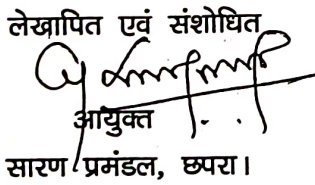 लेखापित एवं संशोधित
आयुक्त
सारण प्रमंडल, छपरा।